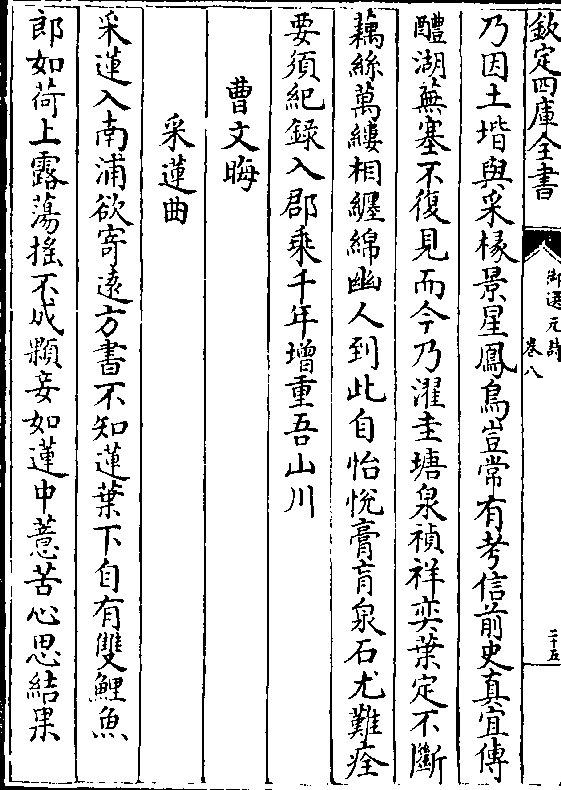 欽定四庫全書
御選元詩
卷八
二十五
乃因土堦與采椽景星鳳鳥豈常有考信前史真宜傳
醴湖蕪塞不復見而今乃濯圭塘泉禎祥奕葉定不斷
藕絲萬縷相纏綿幽人到此自怡悅膏肓泉石尤難痊
要須紀録入郡乘千年增重吾山川
曹文晦
采蓮曲
采蓮入南浦欲寄遠方書不知蓮葉下自有雙鯉魚
郎如荷上露蕩搖不成顆妾如蓮中薏苦心思結果